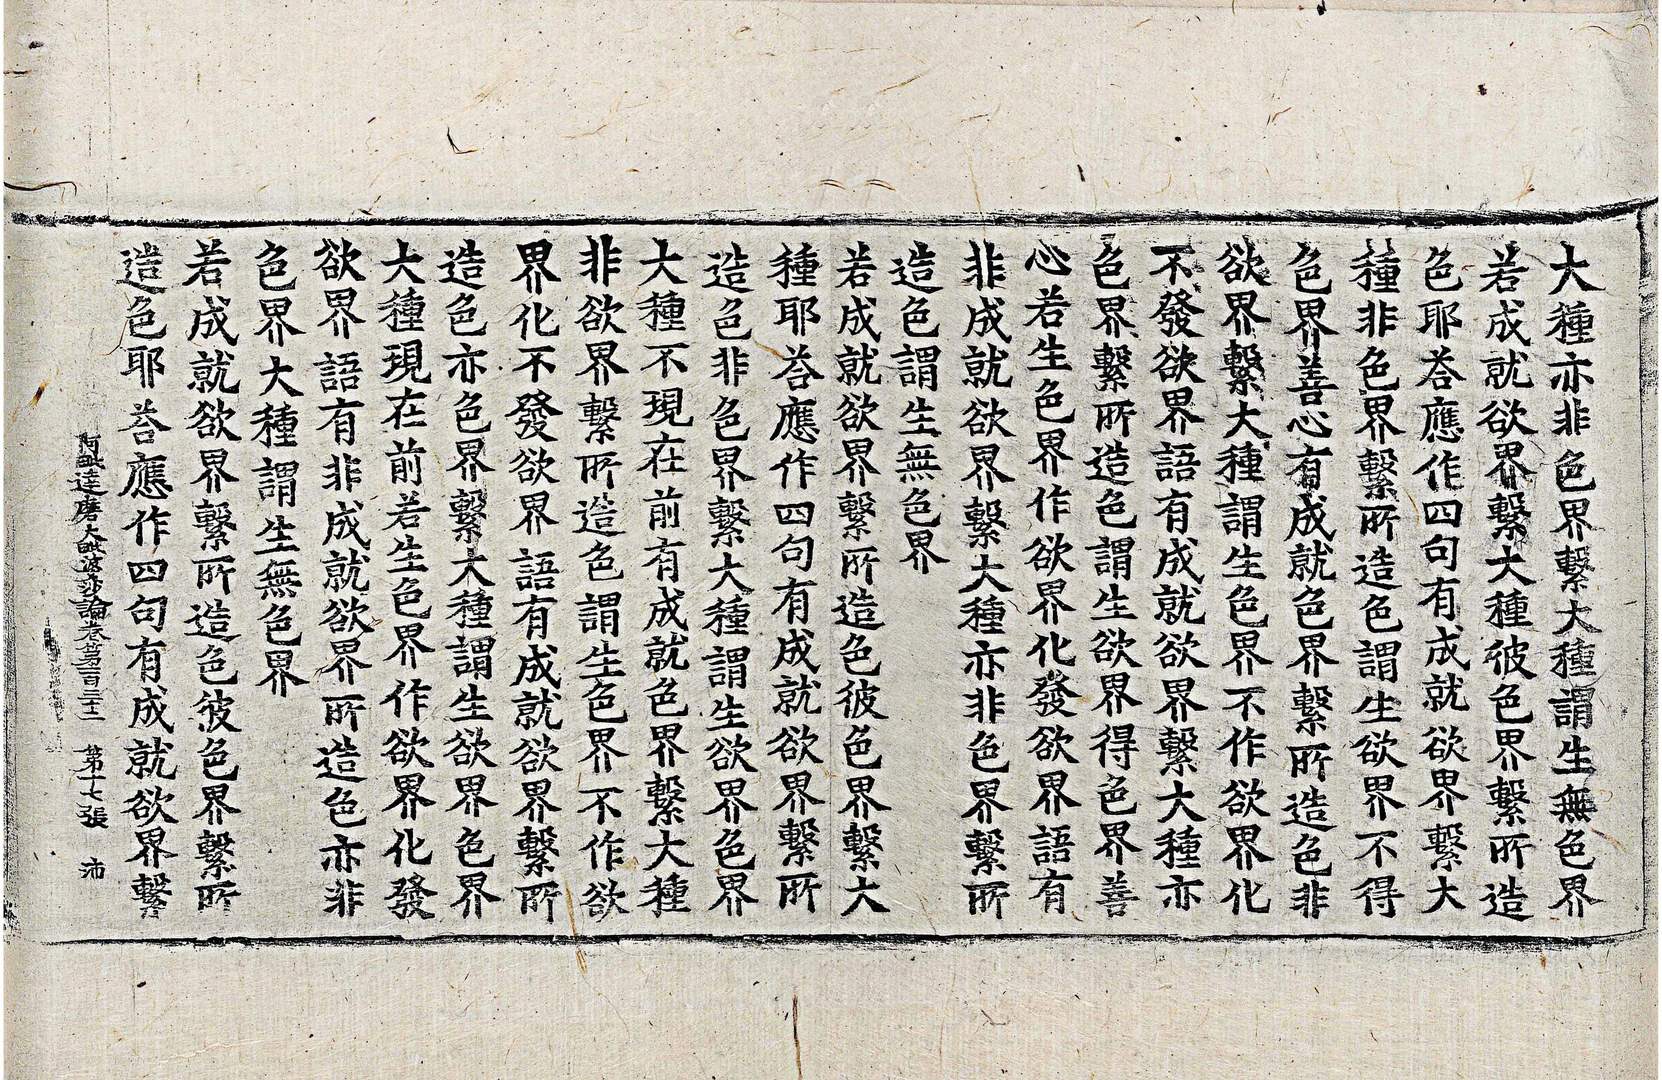 大種亦非色界繫大種謂生無色界
若成就欲界繫大種彼色界繫所造
色耶荅應作四句有成就欲界繫大
種非色界繫所造色謂生欲界不得
色界善心有成就色界繫所造色非
欲界繫大種謂生色界不作欲界化
不發欲界語有成就欲界繫大種亦
色界繫所造色謂生欲界得色界善
心若生色界作欲界化發欲界語有
非成就欲界繫大種亦非色界繫所
造色謂生無色界
若成就欲界繫所造色彼色界繫大
種耶荅應作四句有成就欲界繫所
造色非色界繫大種謂生欲界色界
大種不現在前有成就色界繫大種
非欲界繫所造色謂生色界不作欲
界化不發欲界語有成就欲界繫所
造色亦色界繫大種謂生欲界色界
大種現在前若生色界作欲界化發
欲界語有非成就欲界所造色亦非
色界大種謂生無色界
若成就欲界繫所造色彼色界繫所
造色耶荅應作四句有成就欲界繫
阿毗達磨大毗婆沙論卷第一百三十二 第十七張 沛